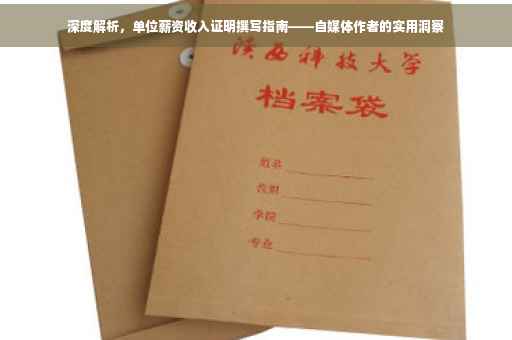 深度解析，单位薪资收入证明撰写指南——自媒体作者的实用洞察
陕西科技大学
档案袋
姓名
学院
专业